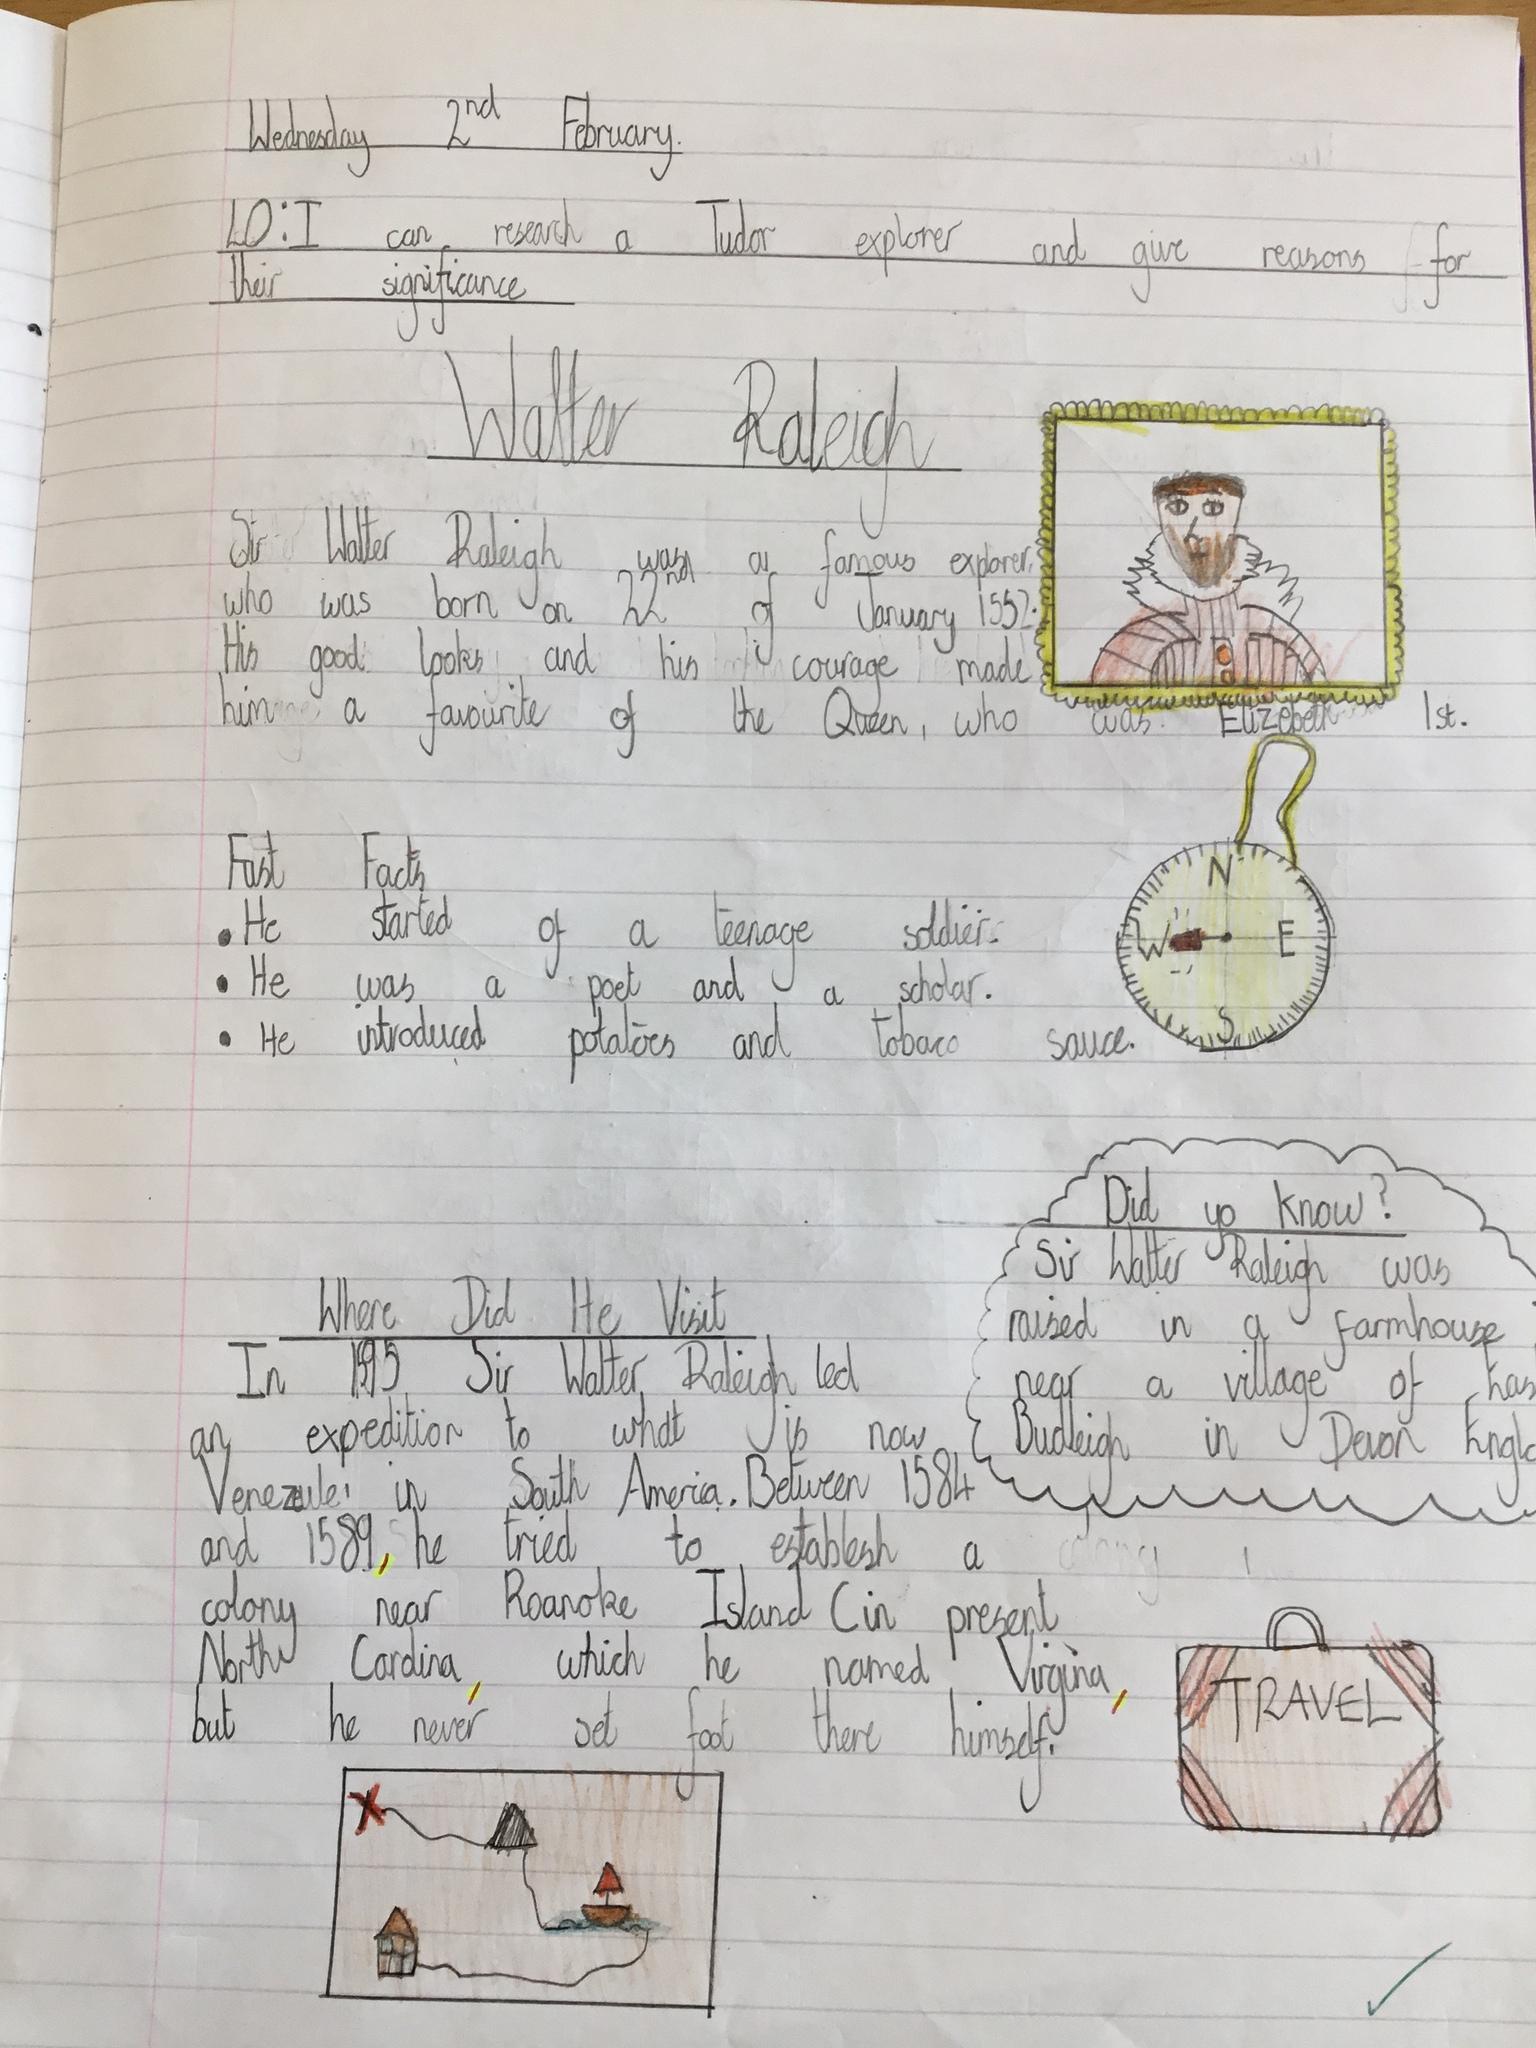 Wednesday 2nd February.
LO: I can research a Tudor explorer and give reasons for
their significance
Walter Raleigh
Sir Walter Raleigh was a famous explorer,
who was born on 22nd of January 1552.
His good looks and his courage made
him a favourite of the Queen, who was Elizebeth 1st.
Fast Facts
• He started of a teenage soldier.
• He was a poet and a scholar.
• He introduced potatoes and tobaco sauce.
N
W E
S
Did yo know?
Sir Walter Raleigh was
raised in a farmhouse
near a village of
Budleigh in Devon
Where Did He Visit
In Sir Walter Raleigh led
an expedition to what is now
in South America. Between 1584
and 1589, he tried to establesh a
colony near Roanoke Island (in present
North Carolina, which he named Virgina,
but he never set foot there himself.
TRAVEL